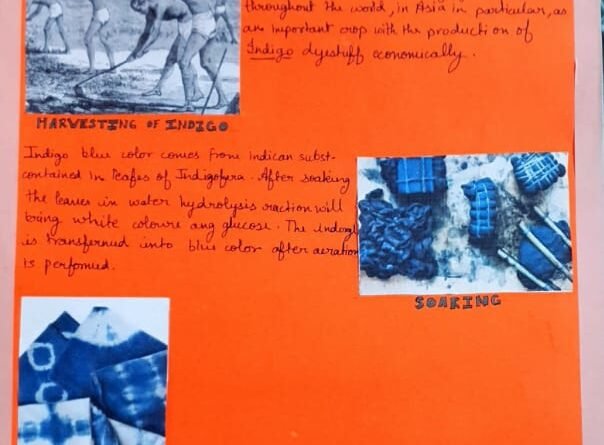 throughout the world, in Asia in particular, as
an important crop with the production of
Indigo dyestuff economically.
HARVESTING OF INDIGO
Indigo blue color comes from indican subst-
contained in leafes of Indigofera. After soaking
the leaves in water hydrolysis reaction will
bring white coloure ang glucose. The indoxyl
is transferned into blue color after aeration
is perfomed.
SOAKING